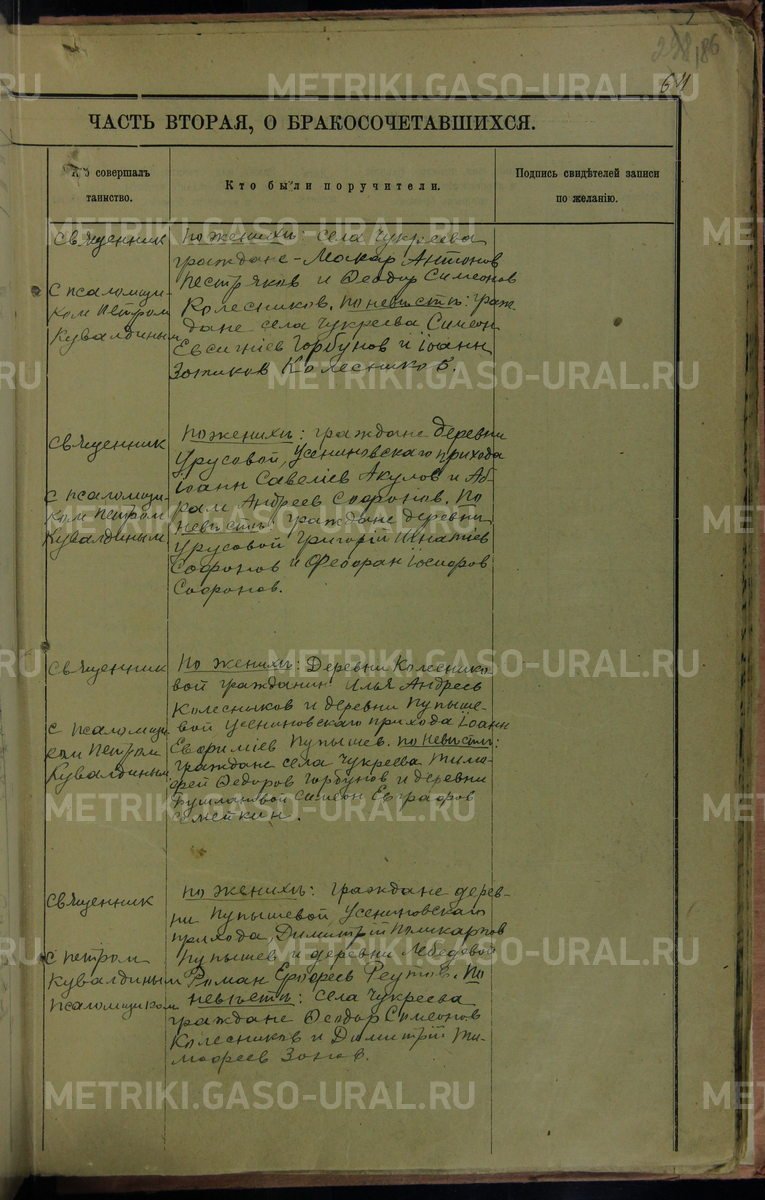 298
186
64
ЧАСТЬ ВТОРАЯ, О БРАКОСОЧЕТАВШИХСЯ.
совершалъ
таинство.
Кто были поручители.
Подпись свидѣтелей записи
по желанію.
Священник
С псаломщи-
ком Петром
Кувалдиным
По женихѣ: села Чукреева
граждане - Макар Антонов
Пестряков и Ѳеодор Симеонов
Колесников. По невѣстѣ: граж-
дане села Чукреева Симеон
Евсигніев Горбунов и Іоанн
Зотиков Колесников.
Священник
С псаломщи-
ком Петром
Кувалдиным
По женихѣ: граждане деревни
Урусовой, Усениновскаго прихода
Іоанн Савеліев Акулов и Аб-
рам Андреев Софронов. По
невѣстѣ: граждане деревни
Урусовой Григорій Игнатіев
Софронов и Іосифов
Софронов.
Священник
С псаломщи-
ком Петром
Кувалдиным
По женихѣ: Деревни Колеснико-
вой гражданин Илья Андреев
Колесников и деревни Пупыше-
вой Усениновскаго прихода Іоанн
Евфиміев Пупышев. По невѣстѣ:
граждане села Чукреева Тимо-
фей Ѳедоров Горбунов и деревни
Симеон Евграфов
Семеткин.
Священник
С Петром
Кувалдиным
псаломщиком
По женихѣ: граждане дерев-
ни Пупышевой Усениновскаго
прихода Димитрій Поликарпов
Пупышев и деревни Лебедовой
Роман Ерофеев Реутов. По
невѣстѣ: села Чукреева
граждане Ѳеодор Симеонов
Колесников и Димитрій Ти-
мофеев Зонов.
METRIKI.GASO-URAL.RU